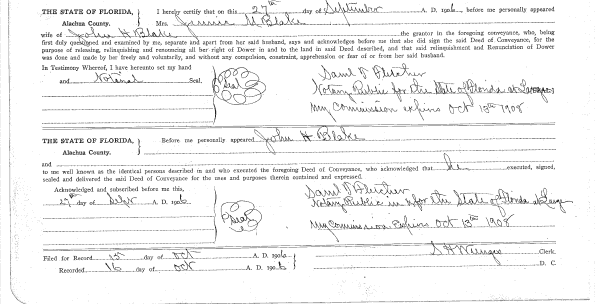 THE STATE OF FLORIDA, I hereby certify that on this 27th day of September A. D. 1906, before me personally appeared
Alachua County. Mrs. Jennie M. Blake
wife of John H Blake the grantor in the foregoing conveyance, who, being
first duly questioned and examined by me, separate and apart from her said husband, says and acknowledges before me that she did sign the said Deed of Conveyance, for the
purpose of releasing, relinquishing and renouncing all her right of Dower in and to the land in said Deed described, and that said relinquishment and Renunciation of Dower
was done and made by her freely and voluntarily, and without any compulsion, constraint, apprehension or fear of or from her said husband.
In Testimony Whereof, I have hereunto set my hand
and Notarial Seal.
Seal
Saml
Notary Public for the State of Florida at Large
My Commission expires Oct 13th 1908
THE STATE OF FLORIDA, Before me personally appeared John H Blake
Alachua County.
and
to me well known as the identical persons described in and who executed the foregoing Deed of Conveyance, who acknowledged that he executed, signed,
sealed and delivered the said Deed of Conveyance for the uses and purposes therein contained and expressed.
Acknowledged and subscribed before me this,
27th day of Sept A. D. 1906
Seal
Saml
Notary Public in & for the State of Florida at Large
My Commission Expires Oct 13th 1908
Filed for Record 15 day of Oct A. D. 1906
Clerk.
Recorded 16 day of Oct A. D. 1906
D. C.